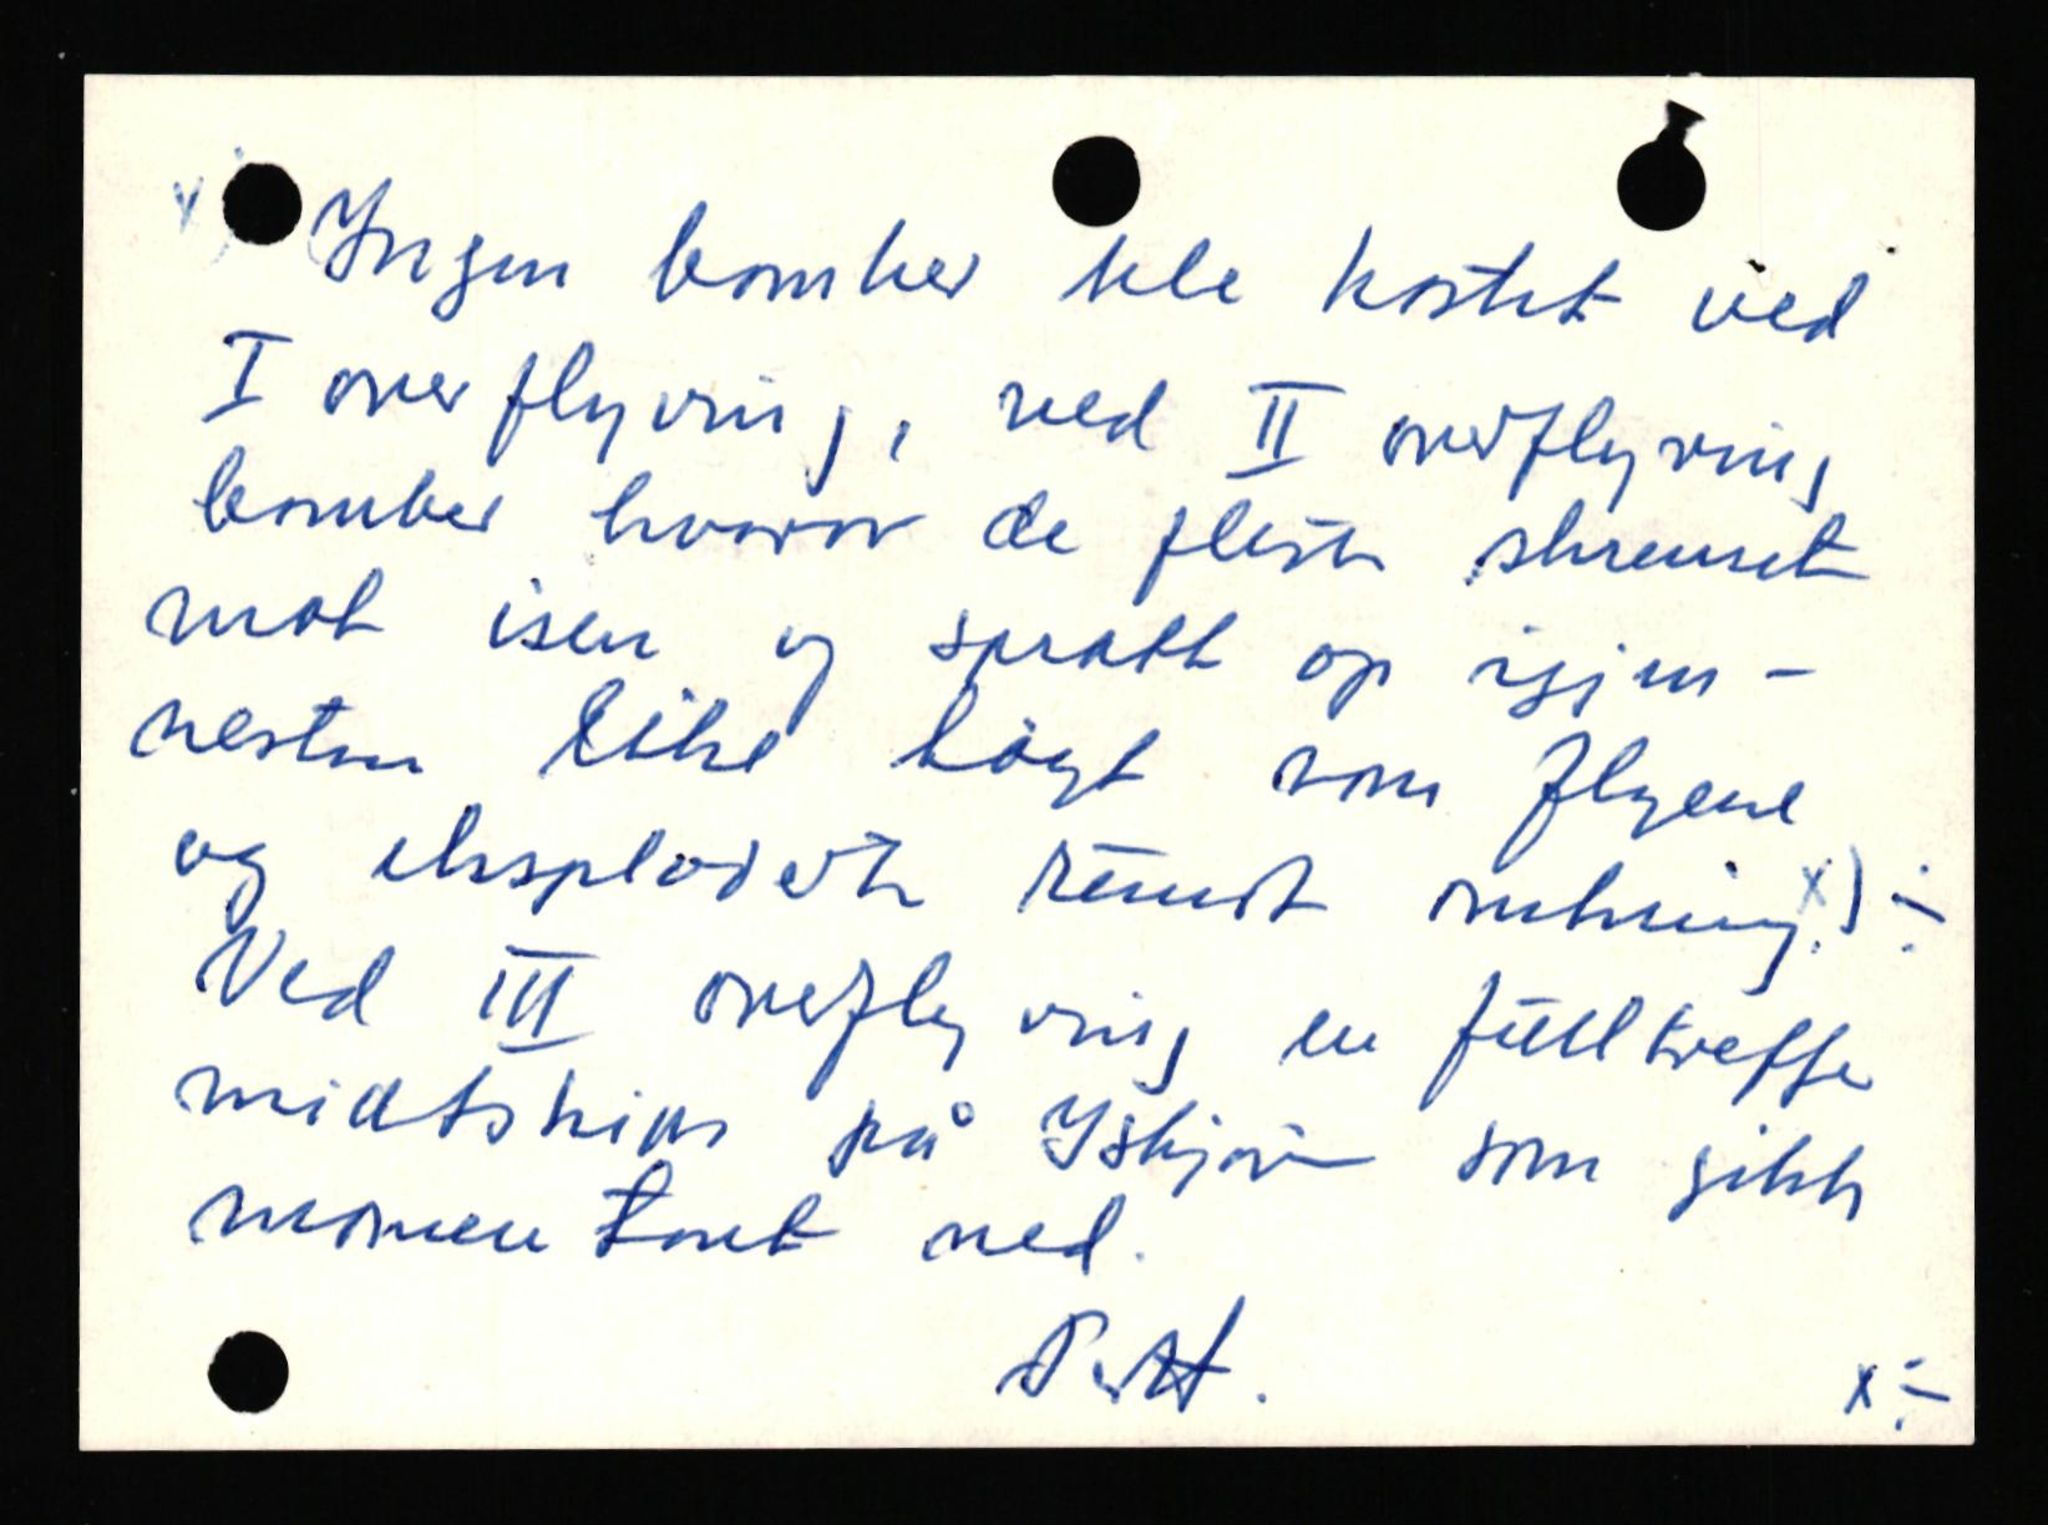 x) Ingen bomber ble kastet ved
I overflyvning, ved II overflyvning
bomber hvorav de fleste skrenset
mot isen og spratt op igjen -
nesten like høyt som flyene
og eksploderte rundt omkring x) ÷
Ved III overflyvning en fulltreffer
midtskips på Isbjørn som gikk
momentant ned.
x ÷